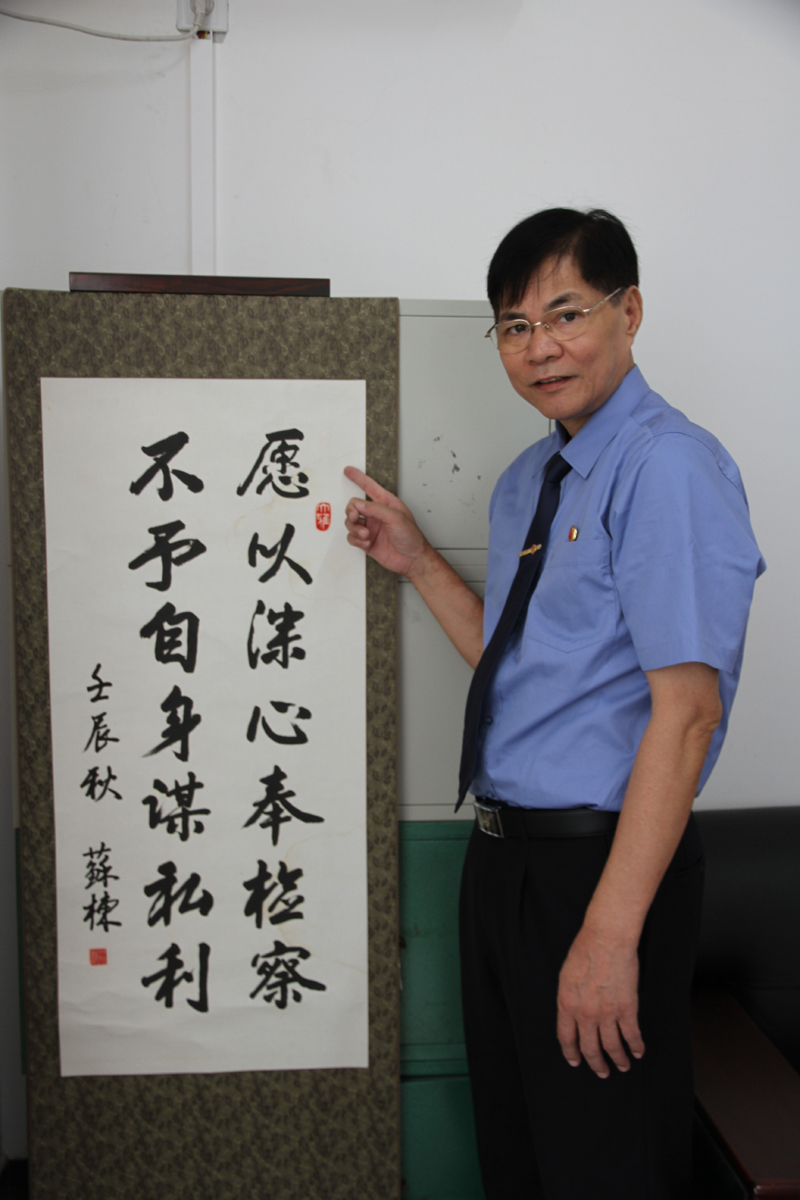 愿以深心奉检察
不予自身谋私利
壬辰秋 蘇棟